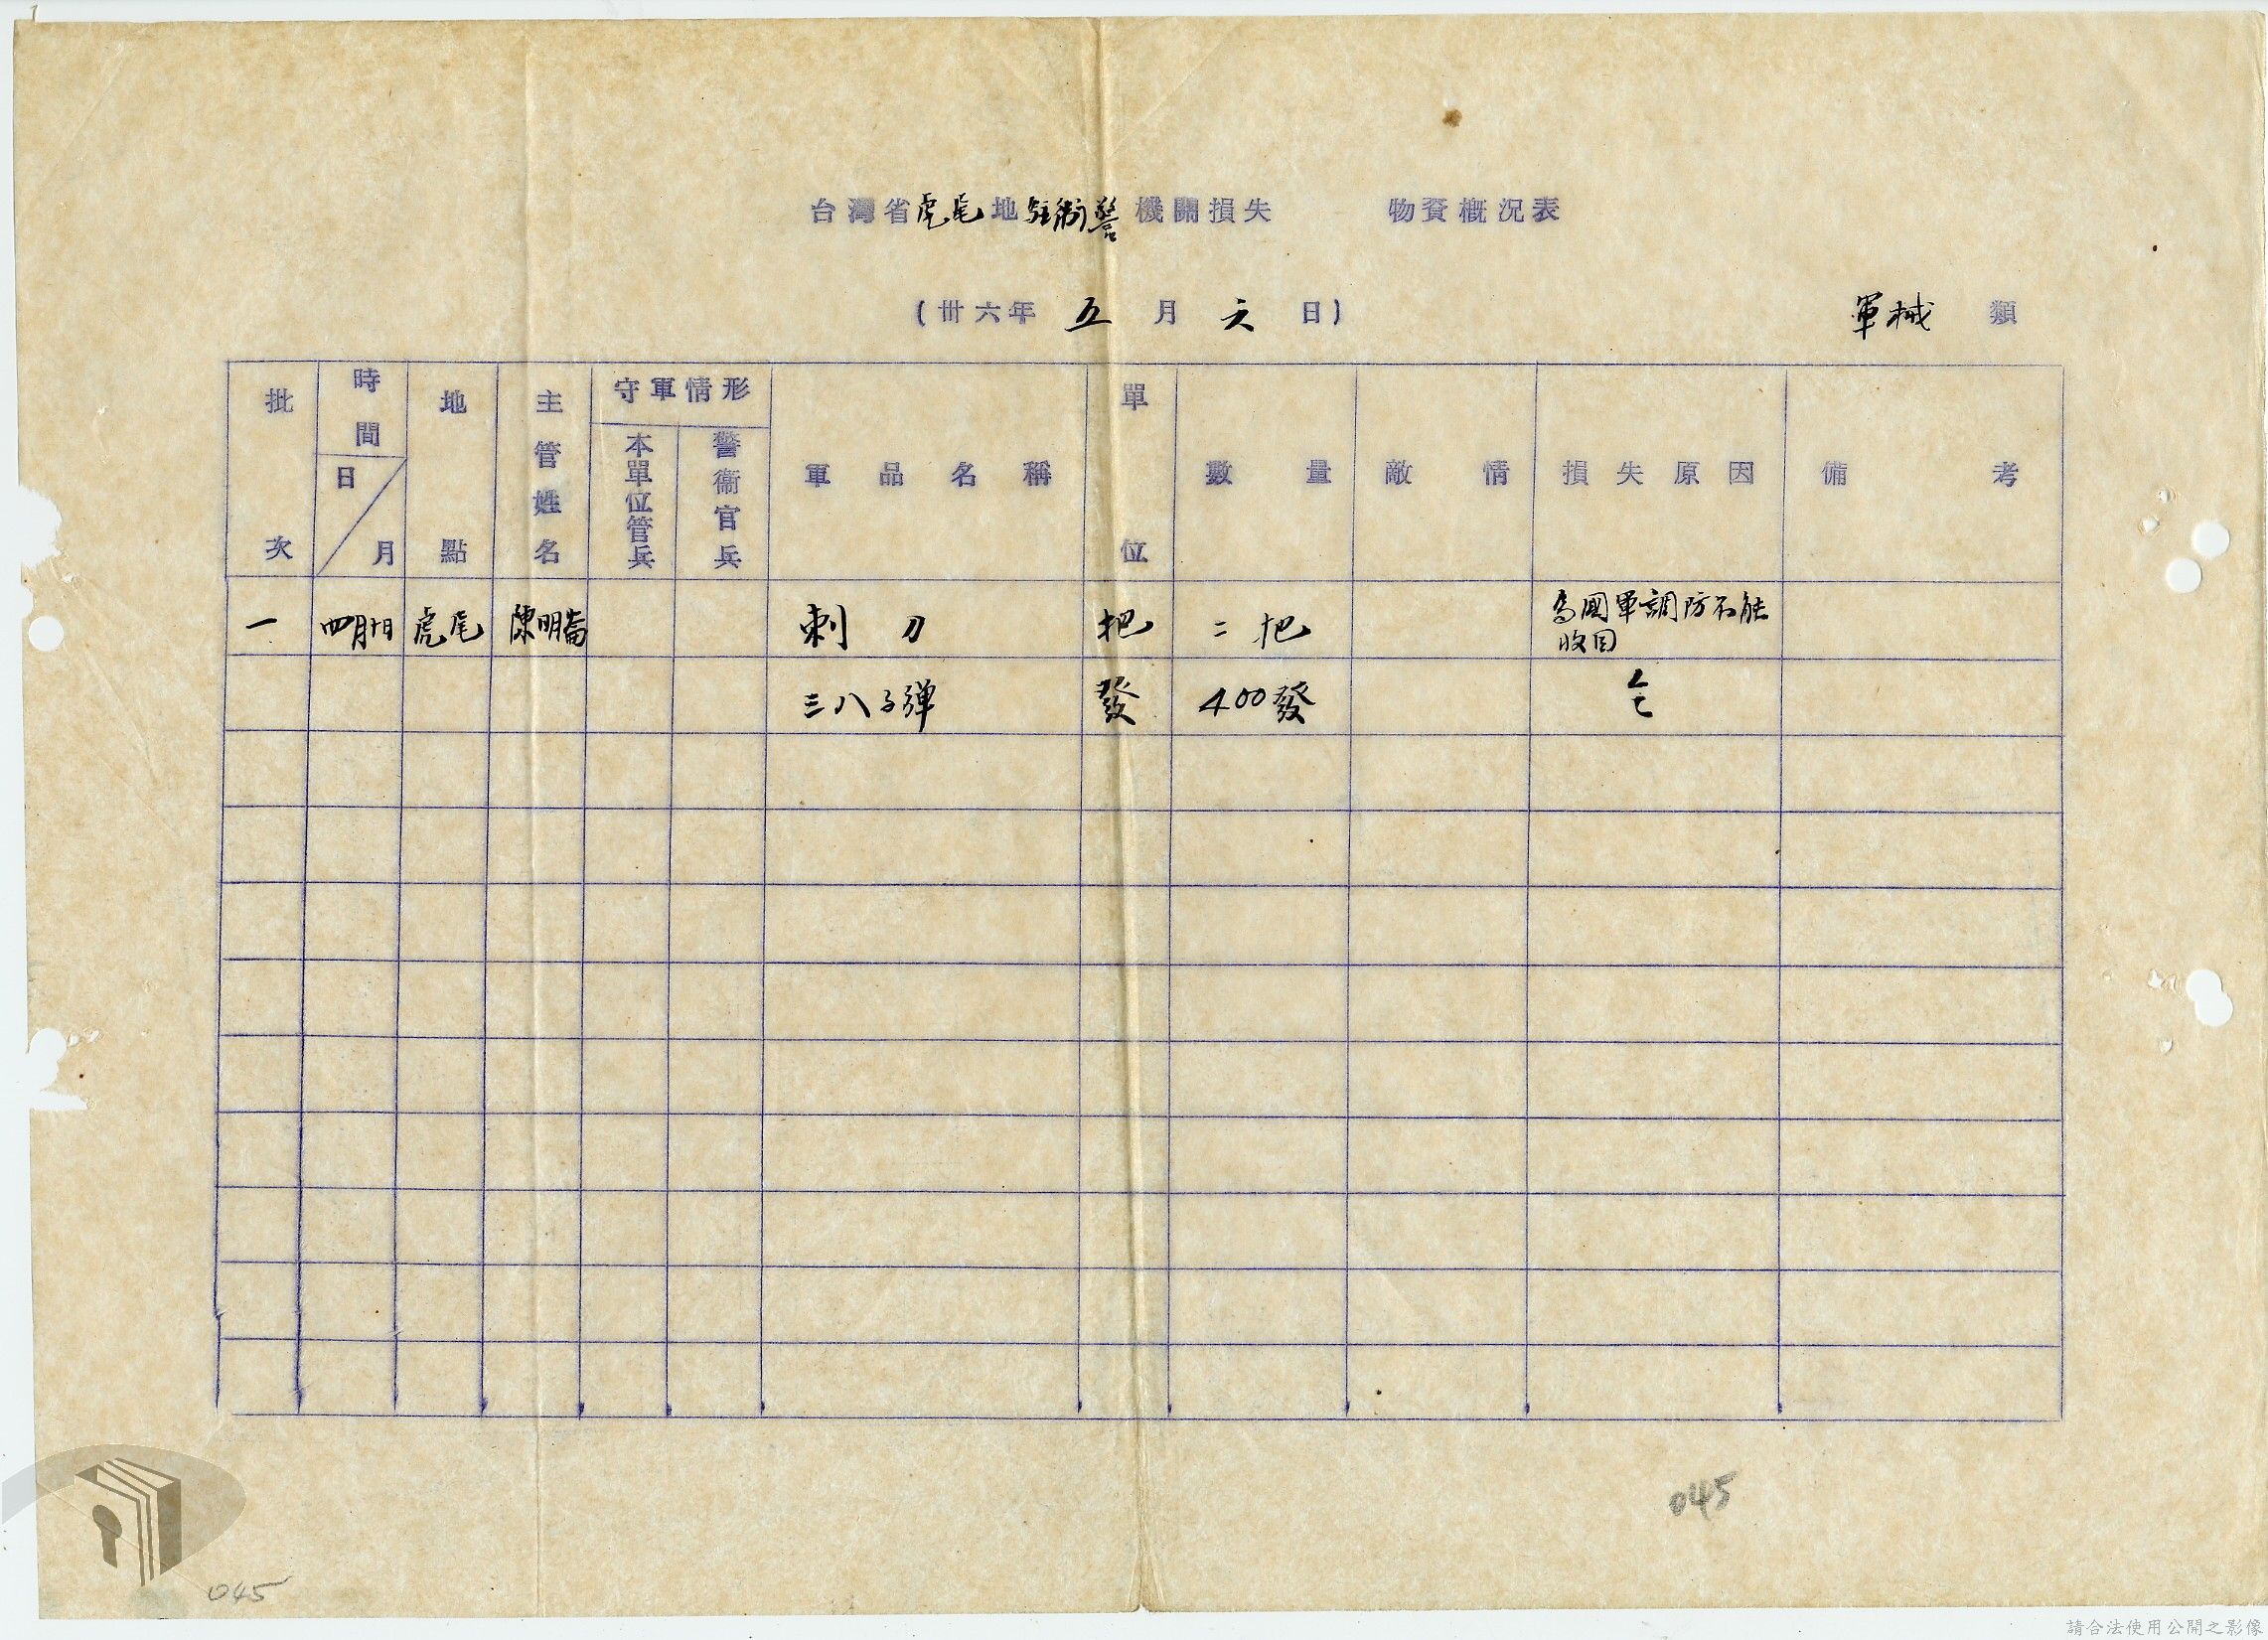 台灣省虎尾地駐衛警機關損失 物資概況表
(卅六年 五 月 六 日)
軍械 類
批次 時間 日/月 地點 主管姓名 守軍情形 本單位管兵 警衞官兵 軍品名稱 單位 數量 敵情 損失原因 備考
一 四月十日 虎尾 陳明崙 刺刀 把 二把 為國軍調防不能
收回
三八子弹 發 400發 仝
045
045
請合法使用公開之影像